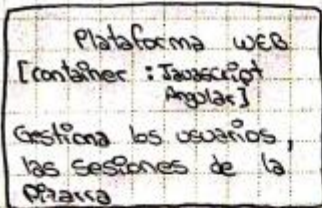 Plataforma WEB
[container : Javascript
Angular]
Gestiona los usuarios,
las sesiones de la
Pizarra